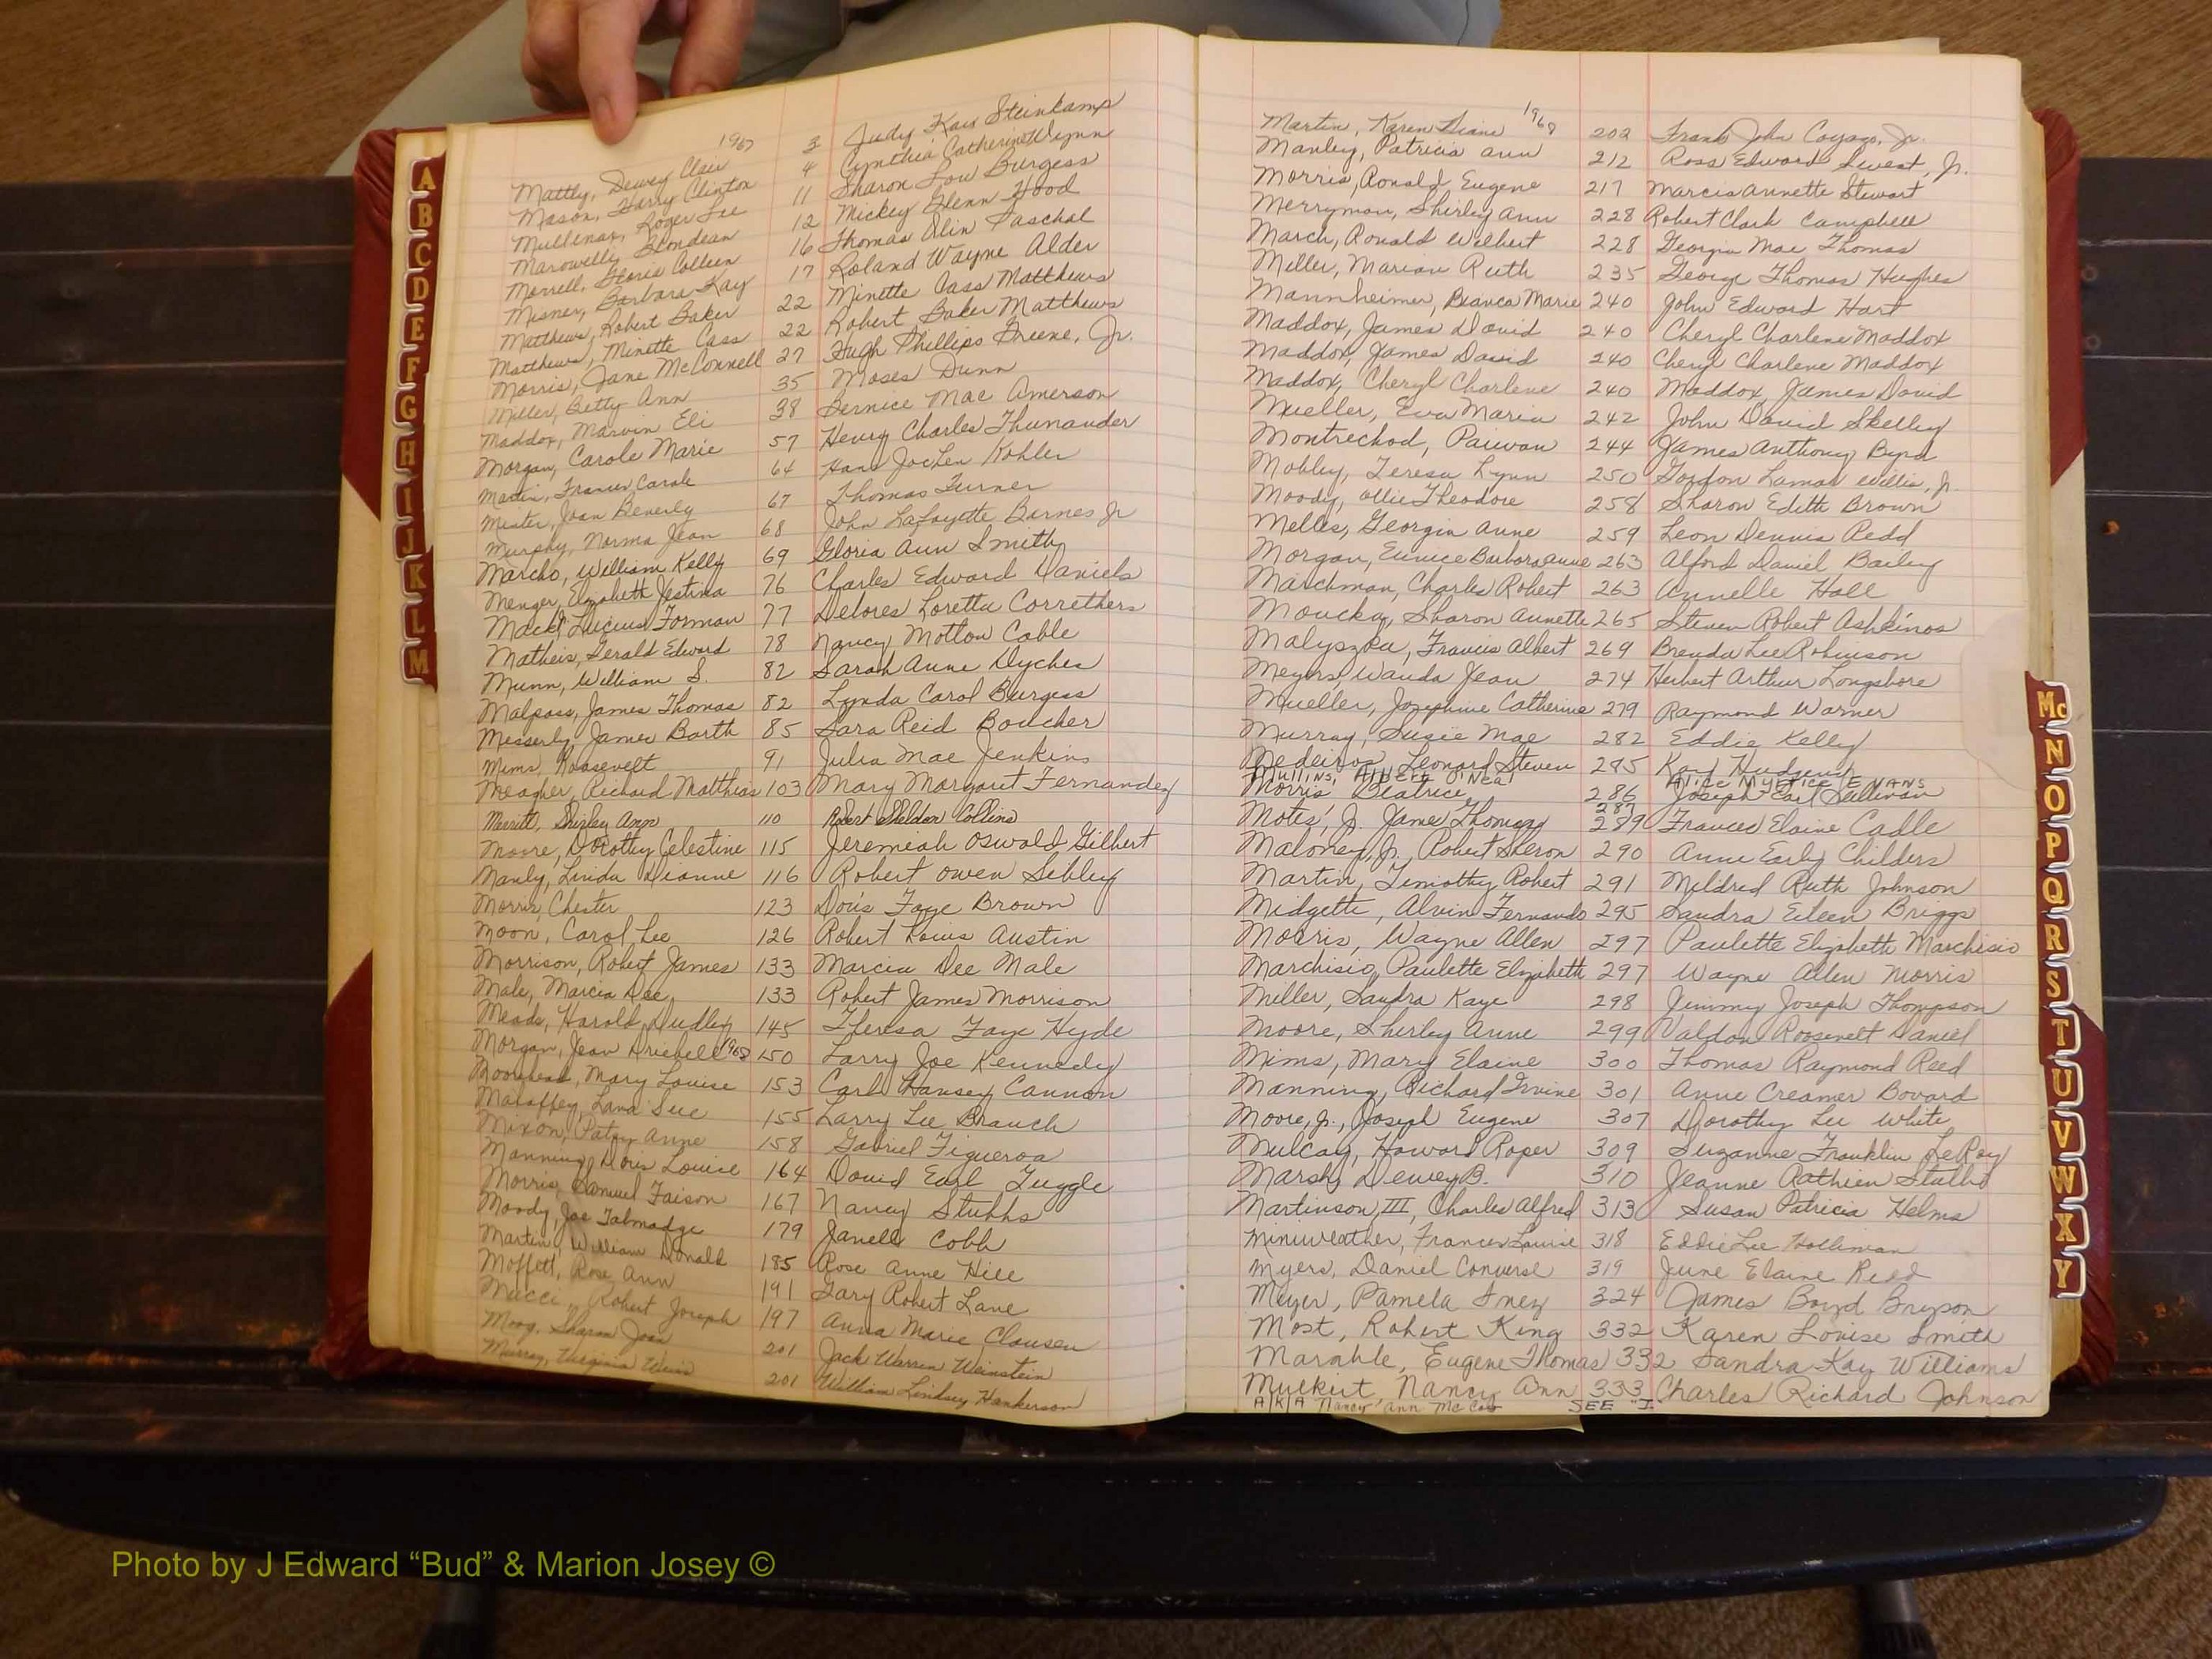 1967
Mattly, Dewey Clair 3 Judy Kay Steinkamp
Mason, Harry Clinton 4 Cynthia Catherine Wynn
Mullenax, Roger Lee 11 Sharon Lou Burgess
Blondean 12 Mickey Glenn Hood
Morrell, Gloria Colleen 16 Thomas Olin Paschal
Misner, Barbara Kay 17 Roland Wayne Alder
Matthews, Robert Baker 22 Minette Cass Matthews
Matthews, Minette Cass 22 Robert Baker Matthews
Morris, Jane McConnell 27 Hugh Phillips Greene, Jr.
Miller, Betty Ann 35 Moses Dunn
Maddox, Marvin Eli 38 Bernice Mae Amerson
Morgan, Carole Marie 57 Henry Charles Thunander
Martin, Frances Carole 64 Hans Jochen Kohler
Mester, Joan Beverly 67 Thomas Turner
Murphy, Norma Jean 68 John LaFayette Barnes Jr
Marcho, William Kelly 69 Gloria Ann Smith
Menger, Elizabeth Jestina 76 Charles Edward Daniels
Mack, Lucius Forman 77 Delores Loretta Correthers
Matheis, Gerald Edward 78 Nancy Motton Cable
Munn, William S. 82 Sarah Anne Dyches
Malpass, James Thomas 82 Lynda Carol Burgess
Messerly, James Barth 85 Sara Reid Boucher
Mims, Roosevelt 91 Julia Mae Jenkins
Meagher, Richard Matthias 103 Mary Margaret Fernandez
Merritt, Shirley Ann 110 Robert Sheldon Collins
Moore, Dorothy Celestine 115 Jeremiah Oswald Gilbert
Manly, Linda Dianne 116 Robert Owen Sibley
Morris, Chester 123 Doris Faye Brown
Moon, Carol Lee 126 Robert Louis Austin
Morrison, Robert James 133 Marcia Dee Male
Male, Marcia Dee 133 Robert James Morrison
Meads, Harold Dudley 145 Theresa Faye Hyde
Morgan, Jean Driebell 1968 150 Larry Joe Kennedy
Moorhead, Mary Louise 153 Carl Hansey Cannon
Mahaffey, Lana Sue 155 Larry Lee Branch
Mixon, Patsy Anne 158 Gabriel Figueroa
Manning, Doris Louise 164 David Earl Tuggle
Morris, Samuel Faison 167 Nancy Stubbs
Moody, Joe Talmadge 179 Janell Cobb
Martin, William Donald 185 Rose Anne Hill
Moffett, Rose Ann 191 Gary Robert Lane
Mucci, Robert Joseph 197 Anna Marie Clausen
Moog, Sharon Joan 201 Jack Warren Weinstein
Murray, Virginia 201 William Lindsey Hankerson
1968
Martin, Karen Diane 202 Frank John Jr.
Manley, Patricia Ann 212 Ross Edward Sweat, Jr.
Morris, Ronald Eugene 217 Marcis Annette Stewart
Merryman, Shirley Ann 228 Robert Clark Campbell
March, Ronald Wilbert 228 Georgia Mae Thomas
Miller, Marian Ruth 235 George Thomas Hughes
Mannheimer, Bianca Marie 240 John Edward Hart
Maddox, James David 240 Cheryl Charlene Maddox
Maddox, James David 240 Cheryl Charlene Maddox
Maddox, Cheryl Charlene 240 Maddox, James David
Mueller, Eva Maria 242 John David Skelley
Montrechod, Paiwan 244 James Anthony Byrd
Mobley, Teresa Lynn 250 Gordon Lamar Willis, Jr.
Moody, Ollie Theodore 258 Sharon Edith Brown
Melles, Georgin Anne 259 Leon Dennis Redd
Morgan, Eunice Barbara Anne 263 Alford Daniel Bailey
Marchman, Charles Robert 263 Annelle Hall
Moucka, Sharon Annette 265 Steven Robert Ashkinos
Malyszka, Francis Albert 269 Brenda Lee Robinson
Meyers, Wanda Jean 274 Herbert Arthur Longshore
Mueller, Josephine Catherine 279 Raymond Warner
Murray, Susie Mae 282 Eddie Kelly
Medeiros, Leonard Steven 285 Kay Hudgens
Mullins, Albert O'Neal ALICE MYRTICE EVANS
Morris Beatrice 286 Joseph Earl Sullivan
287
Motes, Jr. James Thomas 289 Frances Elaine Cadle
Maloney, Jr., Robert Sheron 290 Anne Early Childers
Martin, Timothy Robert 291 Mildred Ruth Johnson
Midgette, Alvin Fernando 295 Sandra Eileen Briggs
Morris, Wayne Allen 297 Paulette Elizabeth Marchisio
Marchisio, Paulette Elizabeth 297 Wayne Allen Morris
Miller, Sandra Kaye 298 Jimmy Joseph Thompson
Moore, Sherley Anne 299 Valdon Roosevelt Daniel
Mims, Mary Elaine 300 Thomas Raymond Reed
Manning, Richard Irvine 301 Anne Creamer Bovard
Moore, Jr., Joseph Eugene 307 Dorothy Lee White
Mulcay, Howard Roper 309 Suzanne Franklin LeRoy
Marsh, Dewey B. 310 Jeanne Stubbs
Martinson III, Charles Alfred 313 Susan Patricia Helms
Miniweather, Frances Louise 318 Eddie Lee Holliman
Myers, Daniel Converse 319 June Elaine Redd
Meyer, Pamela Inez 324 James Boyd Bryson
Most, Robert King 332 Karen Louise Smith
Marable, Eugene Thomas 332 Sandra Kay Williams
Mulkirt, Nancy Ann 333 Charles Richard Johnson
A/K/A Nancy Ann McCoo SEE "J
A
B
C
D
E
F
G
H
I
J
K
L
M
Mc
N
O
P
Q
R
S
T
U
V
W
X
Y
Photo by J Edward “Bud” & Marion Josey ©